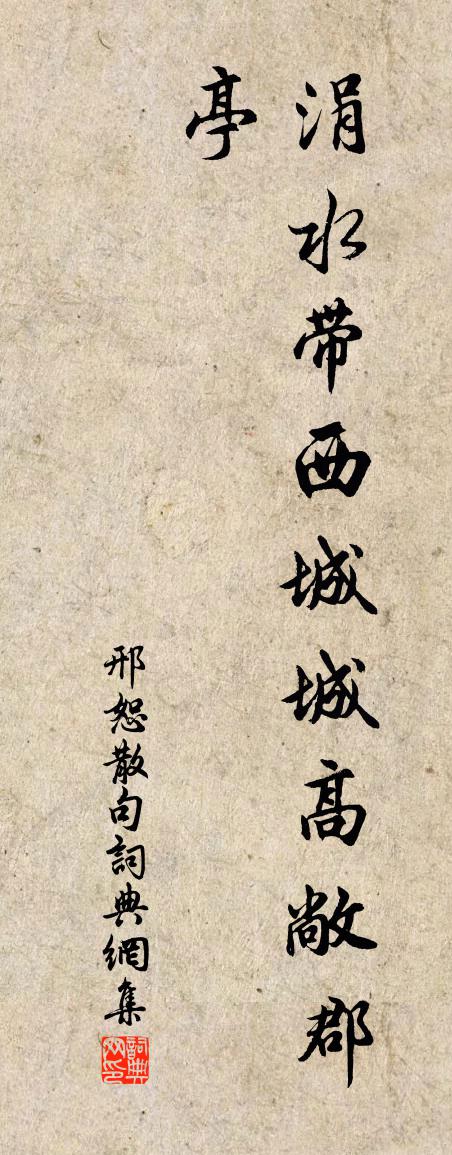 涓水带西城城高敞郡
亭
邢恕散句詞典網集
詞典网印